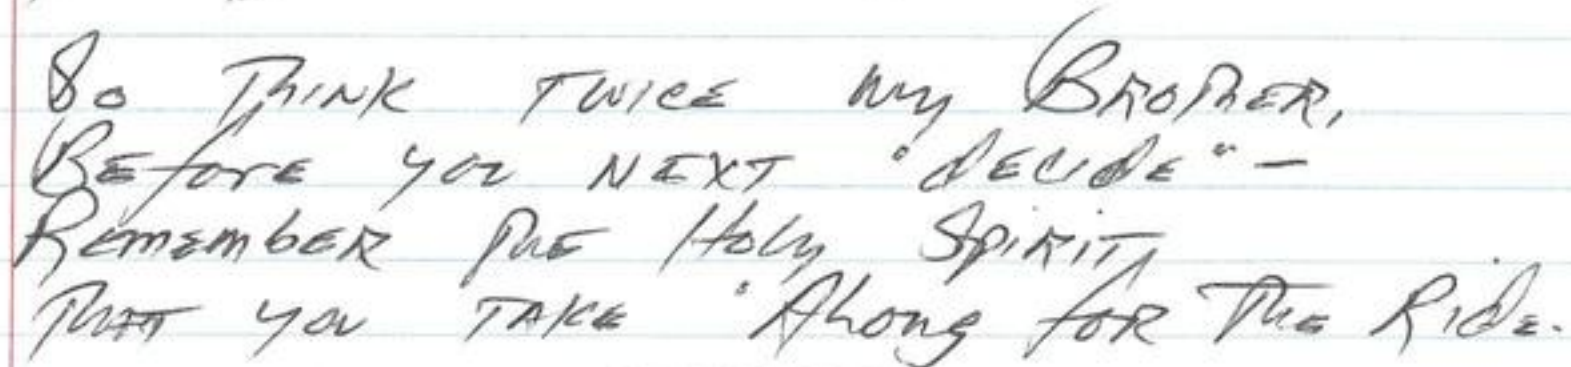 So Think twice my Brother,
Before you next "decide" –
Remember the Holy Spirit,
That you take "Along for The Ride.